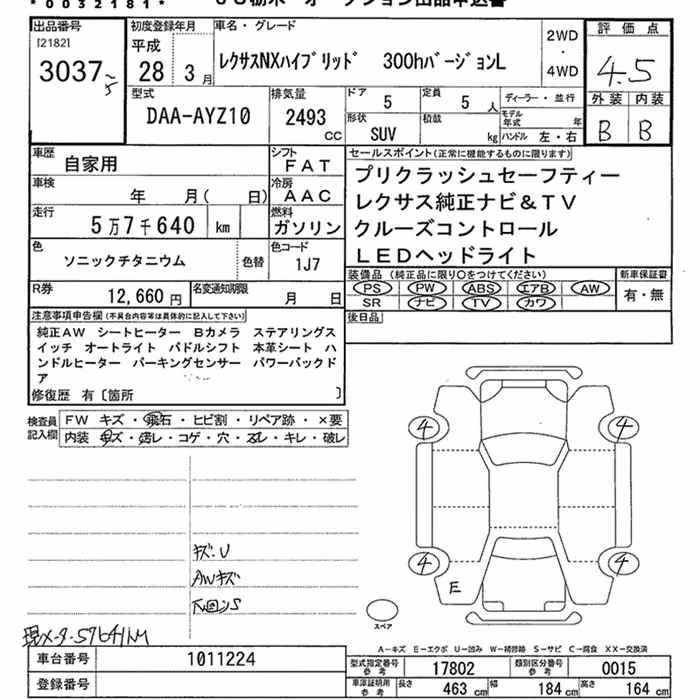 * 0032181 *
出品番号 初度登録年月 車名・グレード 2WD 評価点
[2182] 平成 ・
3037 28 3月 レクサスNXハイブリッド 300hバージョンL 4WD 4.5
型式 排気量 ドア 5 定員 5人 ディーラー・並行 外装 内装
DAA-AYZ10 2493CC 形状 SUV 積載 kg モデル年式 年 B B
ハンドル 左・右
車歴 自家用 シフト FAT セールスポイント(正常に機能するものに限ります)
車検 年 月( 日) 冷房 AAC プリクラッシュセーフティー
走行 5万7千640 km 燃料 ガソリン レクサス純正ナビ&TV
色 ソニックチタニウム 色替 色コード 1J7 クルーズコントロール
LEDヘッドライト
R券 12,660円 名変通知期限 月 日 装備品(純正品に限り○をつけてください) 新車保証書
PS PW ABS エアB AW 有・無
SR ナビ TV カワ
注意事項申告欄(不具合内容等は具体的に記入して下さい) 後日品
純正AW シートヒーター Bカメラ ステアリングス
イッチ オートライト パドルシフト 本革シート ハ
ンドルヒーター パーキングセンサー パワーバックド
ア
修復歴 有〔箇所 〕
検査員記入欄 FW キズ・飛石・ヒビ割・リペア跡・×要
内装 キズ・汚レ・コゲ・穴・スレ・キレ・破レ
4 4
4 4
E
キズ.U
AWキズ
下回りS
スペア
現メータ 57641KM
A-キズ E-エクボ U-凹み W-補修跡 S-サビ C-腐食 XX-交換済
車台番号 1011224 型式指定番号 参考 17802 類別区分番号 参考 0015
登録番号 車庫証明用 参考 長さ 463cm 幅 184cm 高さ 164cm